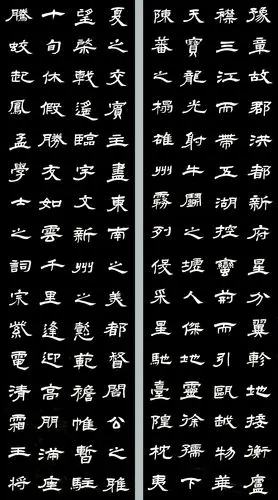 豫章故郡洪都新府星分翼軫地接衡廬
襟三江而帶五湖控蠻荊而引甌越物華
天寶龍光射牛鬭之墟人傑地靈徐孺下
陳蕃之榻雄州霧列俊采星馳臺隍枕夷
夏之交賓主盡東南之美都督閻公之雅
望棨戟遙臨宇文新州之懿範襜帷暫駐
十旬休假勝友如雲千里逢迎高朋滿座
騰蛟起鳳孟學士之詞宗紫電清霜王將